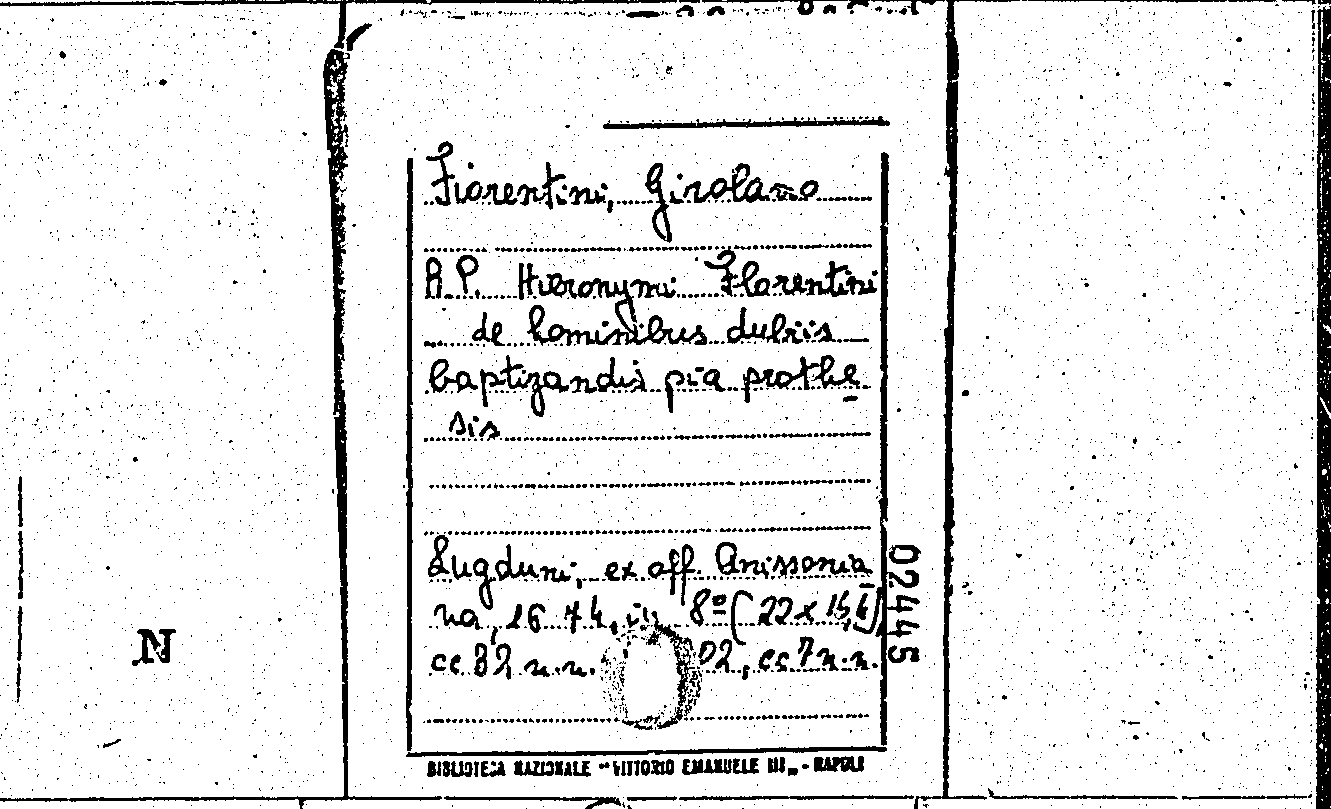 Fiorentini, Girolamo
R.P. Hieronymi Florentini
de hominibus dubiis
baptizandis pia prothe
sis
Lugduni, ex off. Anissonia
na, 1674, in 8º (22x15,
cc 32 n.n. 02, cc 7 n.n.
02445
N
BIBLIOTECA NAZIONALE "VITTORIO EMANUELE III" - NAPOLI